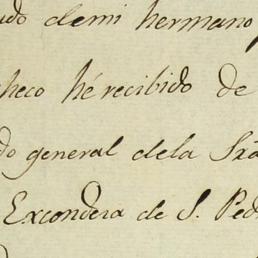 do demi hermano
checo hé recibido de
do general dela Sra
Excondera de S. Ped